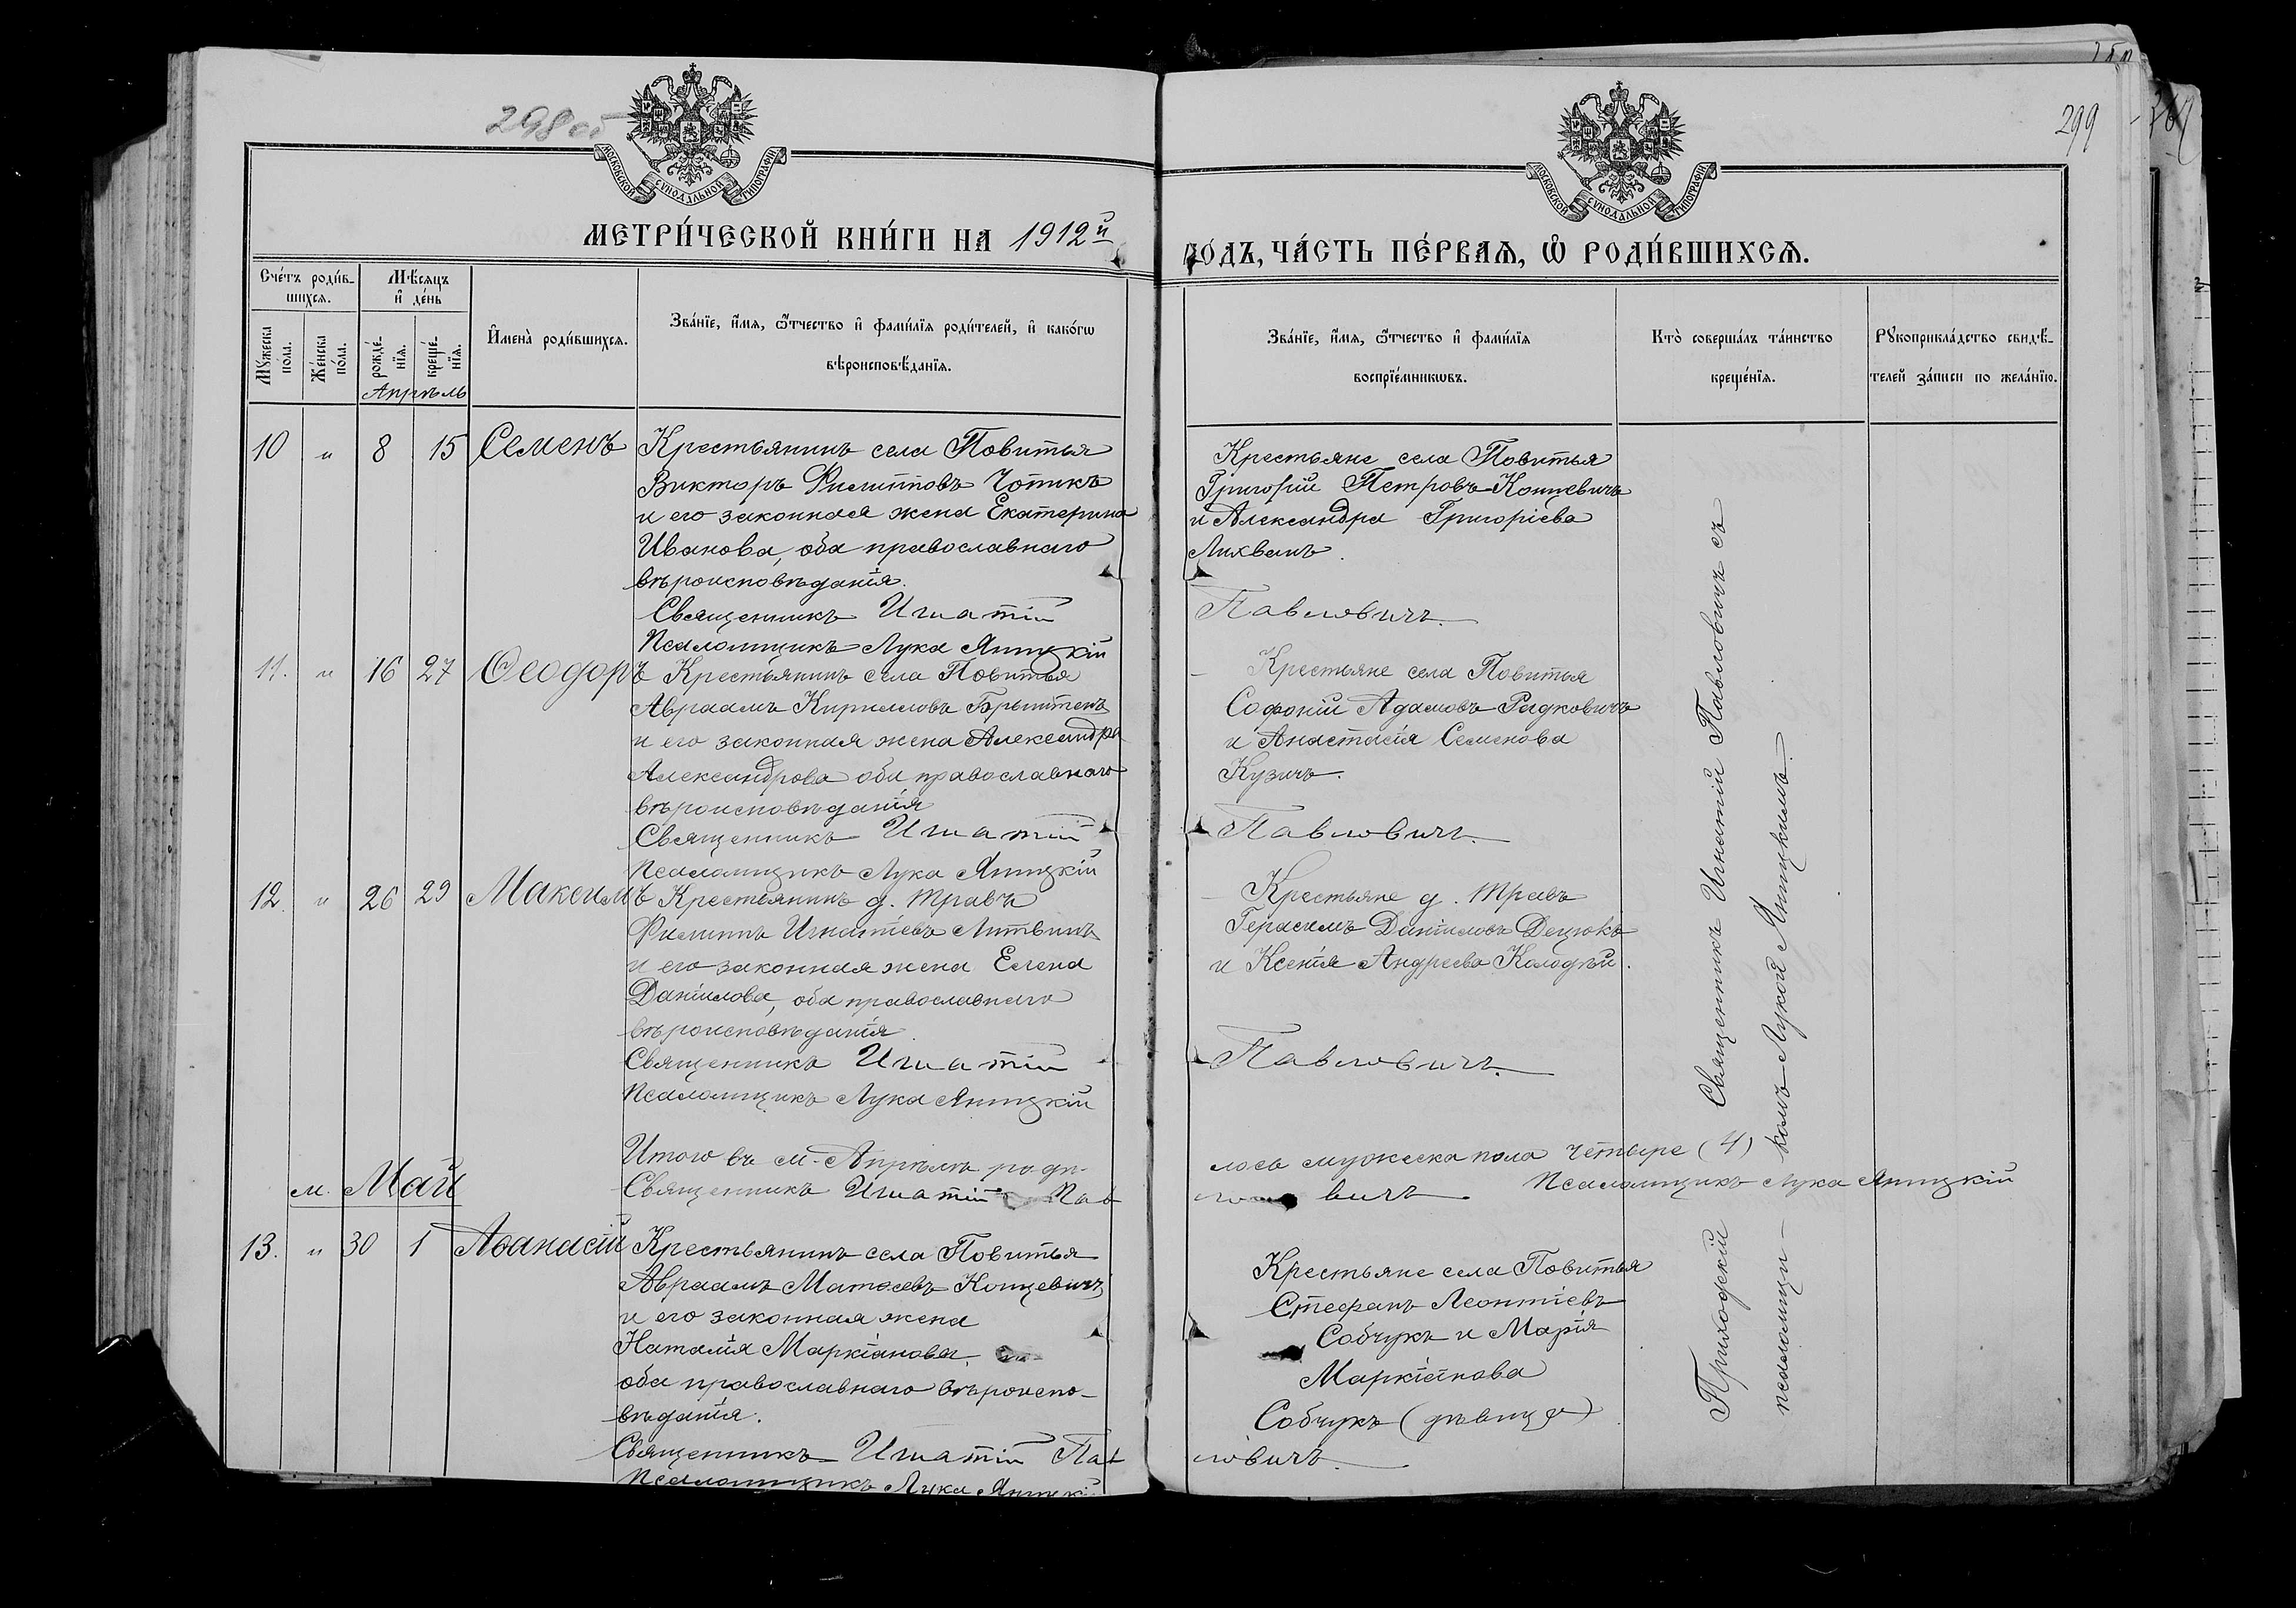 298 об
МОСКОВСКОЙ СѴНОДАЛЬНОЙ ТИПОГРАФІИ
МЕТРИ́ЧЕСКОЙ КНИ́ГИ НА 1912й
Сче́тъ роди́в-
шихся.
Мѣ́сяцъ
и҆ де́нь
Мꙋжеска
по́ла.
Же́нска
по́ла.
рожде́-
нїя.
креще́-
нїя.
Апрѣль
И҆мена̀ роди́вшихся.
Зва́нїе, и҆́мя, ѻ҆́тчество и҆ фами́лїя роди́телей, и҆ како́гѡ
вѣроисповѣ́данїя.
10 " 8 15 Семенъ
Крестьянинъ села Повитья
Викторъ Филипповъ Чопикъ
и его законная жена Екатерина
Иванова, оба православнаго
вѣроисповѣданія.
Священникъ Игнатій
Псаломщикъ Лука Яницкій
11. " 16 27 Ѳеодоръ
Крестьянинъ села Повитья
Авраамъ Кирилловъ
и его законная жена Александра
Александрова оба православнаго
вѣроисповѣданія
Священникъ Игнатій
Псаломщикъ Лука Яницкій
12. " 26 29 Максимъ
Крестьянинъ д. Травъ
Филиппъ Игнатіевъ Литвинъ
и его законная жена Елена
Даніилова, оба православнаго
вѣроисповѣданія.
Священникъ Игнатій
Псаломщикъ Лука Яницкій
Итого въ м. Апрѣлѣ роди-
Священникъ Игнатій Пав
м. Май
13. " 30 1 Аѳанасій
Крестьянинъ села Повитья
Авраамъ Матѳеевъ Концевичъ
и его законная жена
Наталія Маркіанова,
оба православнаго вѣроиспо-
вѣданія.
Священникъ Игнатій Пав
Псаломщикъ Лука Яницкій
299
МОСКОВСКОЙ СѴНОДАЛЬНОЙ ТИПОГРАФІИ
ГО́ДЪ, ЧА́СТЬ ПЕ́РВАЯ, Ѡ҆ РОДИ́ВШИХСЯ.
Зва́нїе, и҆́мя, ѻ҆́тчество и҆ фами́лїя
воспрїе́мникѡвъ.
Кто̀ соверша́лъ та́инство
креще́нїя.
Рꙋкоприкла́дство свидѣ́-
телей за́писи по жела́нїю.
Крестьяне села Повитья
Григорій Петровъ Концевичъ
и Александра Григоріева
Лихванъ.
Павловичъ.
Крестьяне села Повитья
Софоній Адамовъ Радковичъ
и Анастасія Семенова
Кузичъ.
Павловичъ.
Крестьяне д. Травъ
Герасимъ Даніиловъ Децюкъ
и Ксенія Андреева Колодѣй.
Павловичъ.
лось мужеска пола четыре (4)
ловичъ. Псаломщикъ Лука Яницкій
Крестьяне села Повитья
Стефанъ Леонтіевъ
Собчукъ и Марія
Маркіанова
Собчукъ (дѣвица)
ловичъ.
Приходскій Священникъ Игнатій Павловичъ съ
псаломщи-комъ Лукой Яницкимъ.